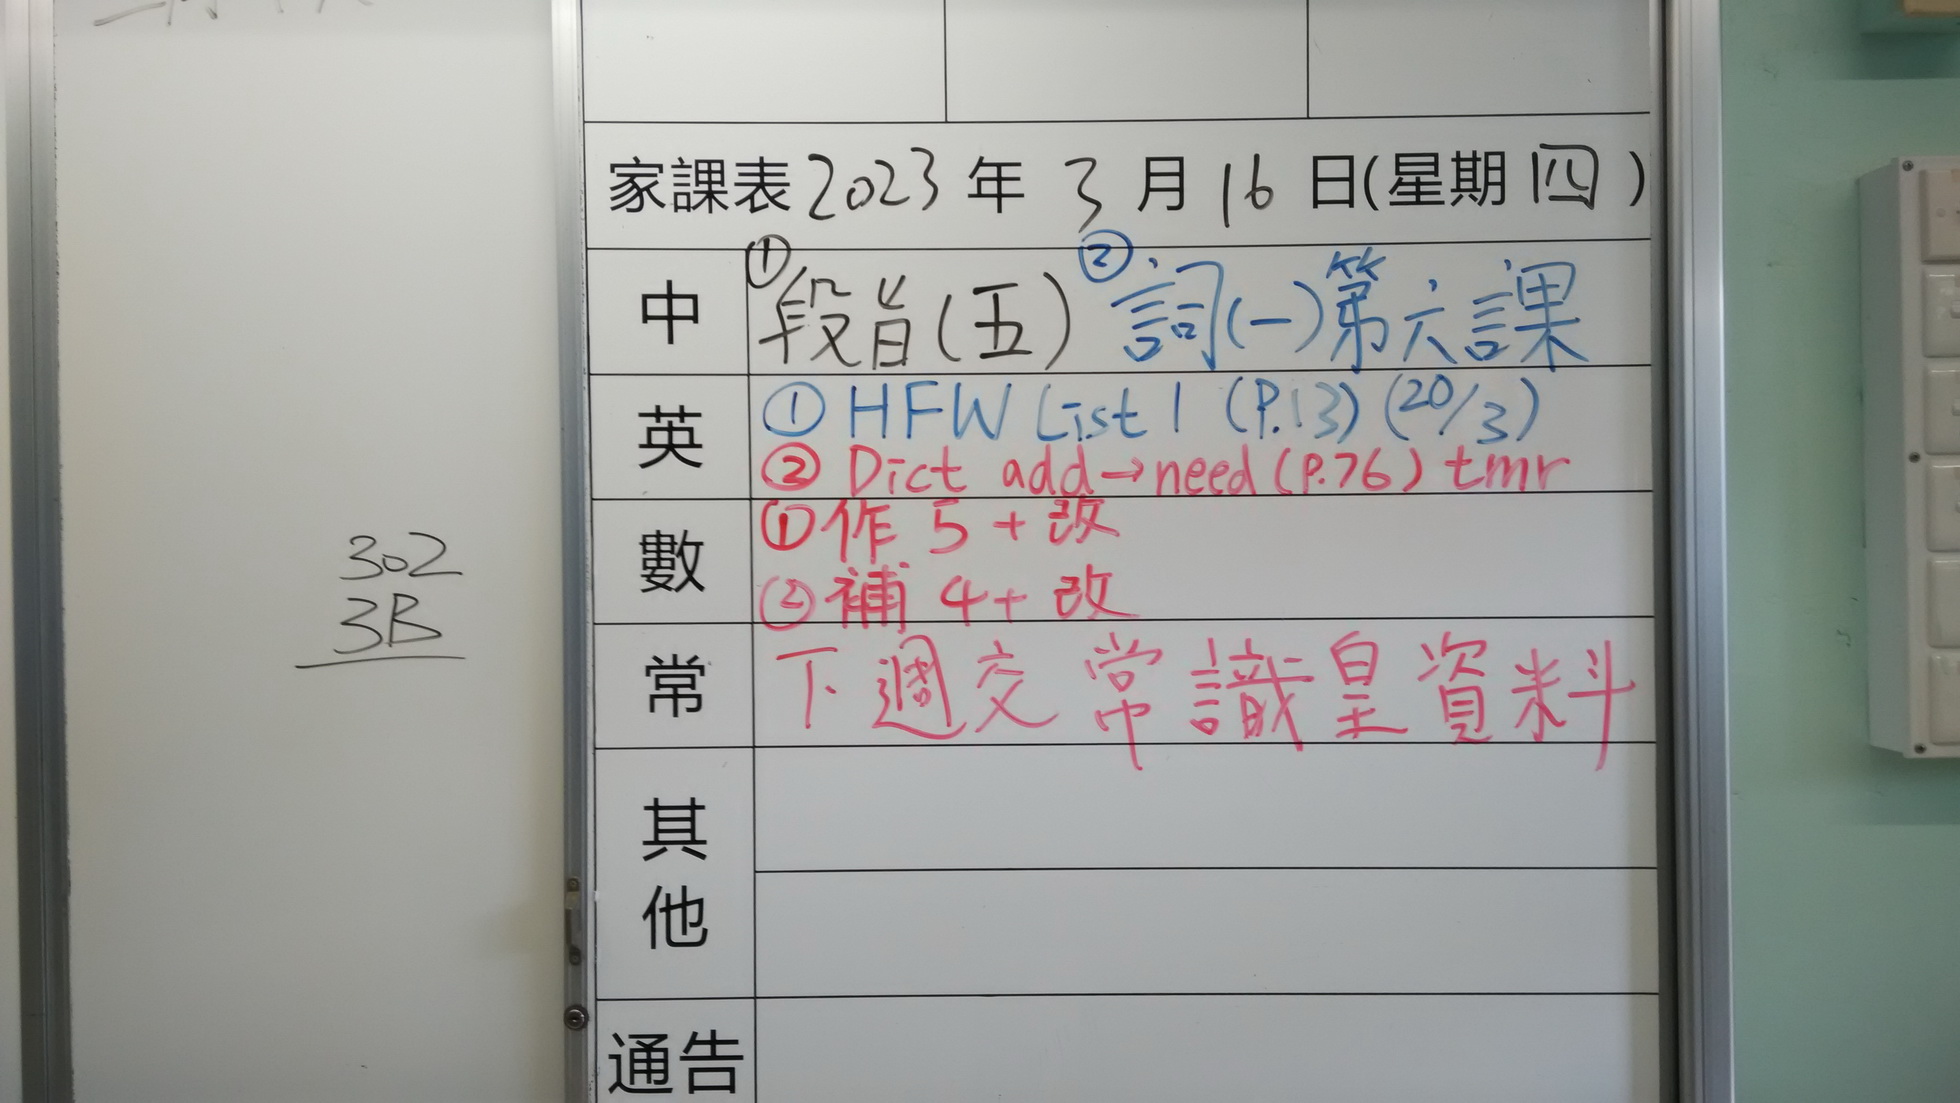 家課表 2023 年 3 月 16 日(星期 四)
中 ① 段旨(五) ② 詞(一)第六課
英 ① HFW List 1 (P.13) (20/3)
② Dict add→need (P.76) tmr
數 ① 作 5 + 改
② 補 4 + 改
常 下週交常識皇資料
其他
通告
302
3B